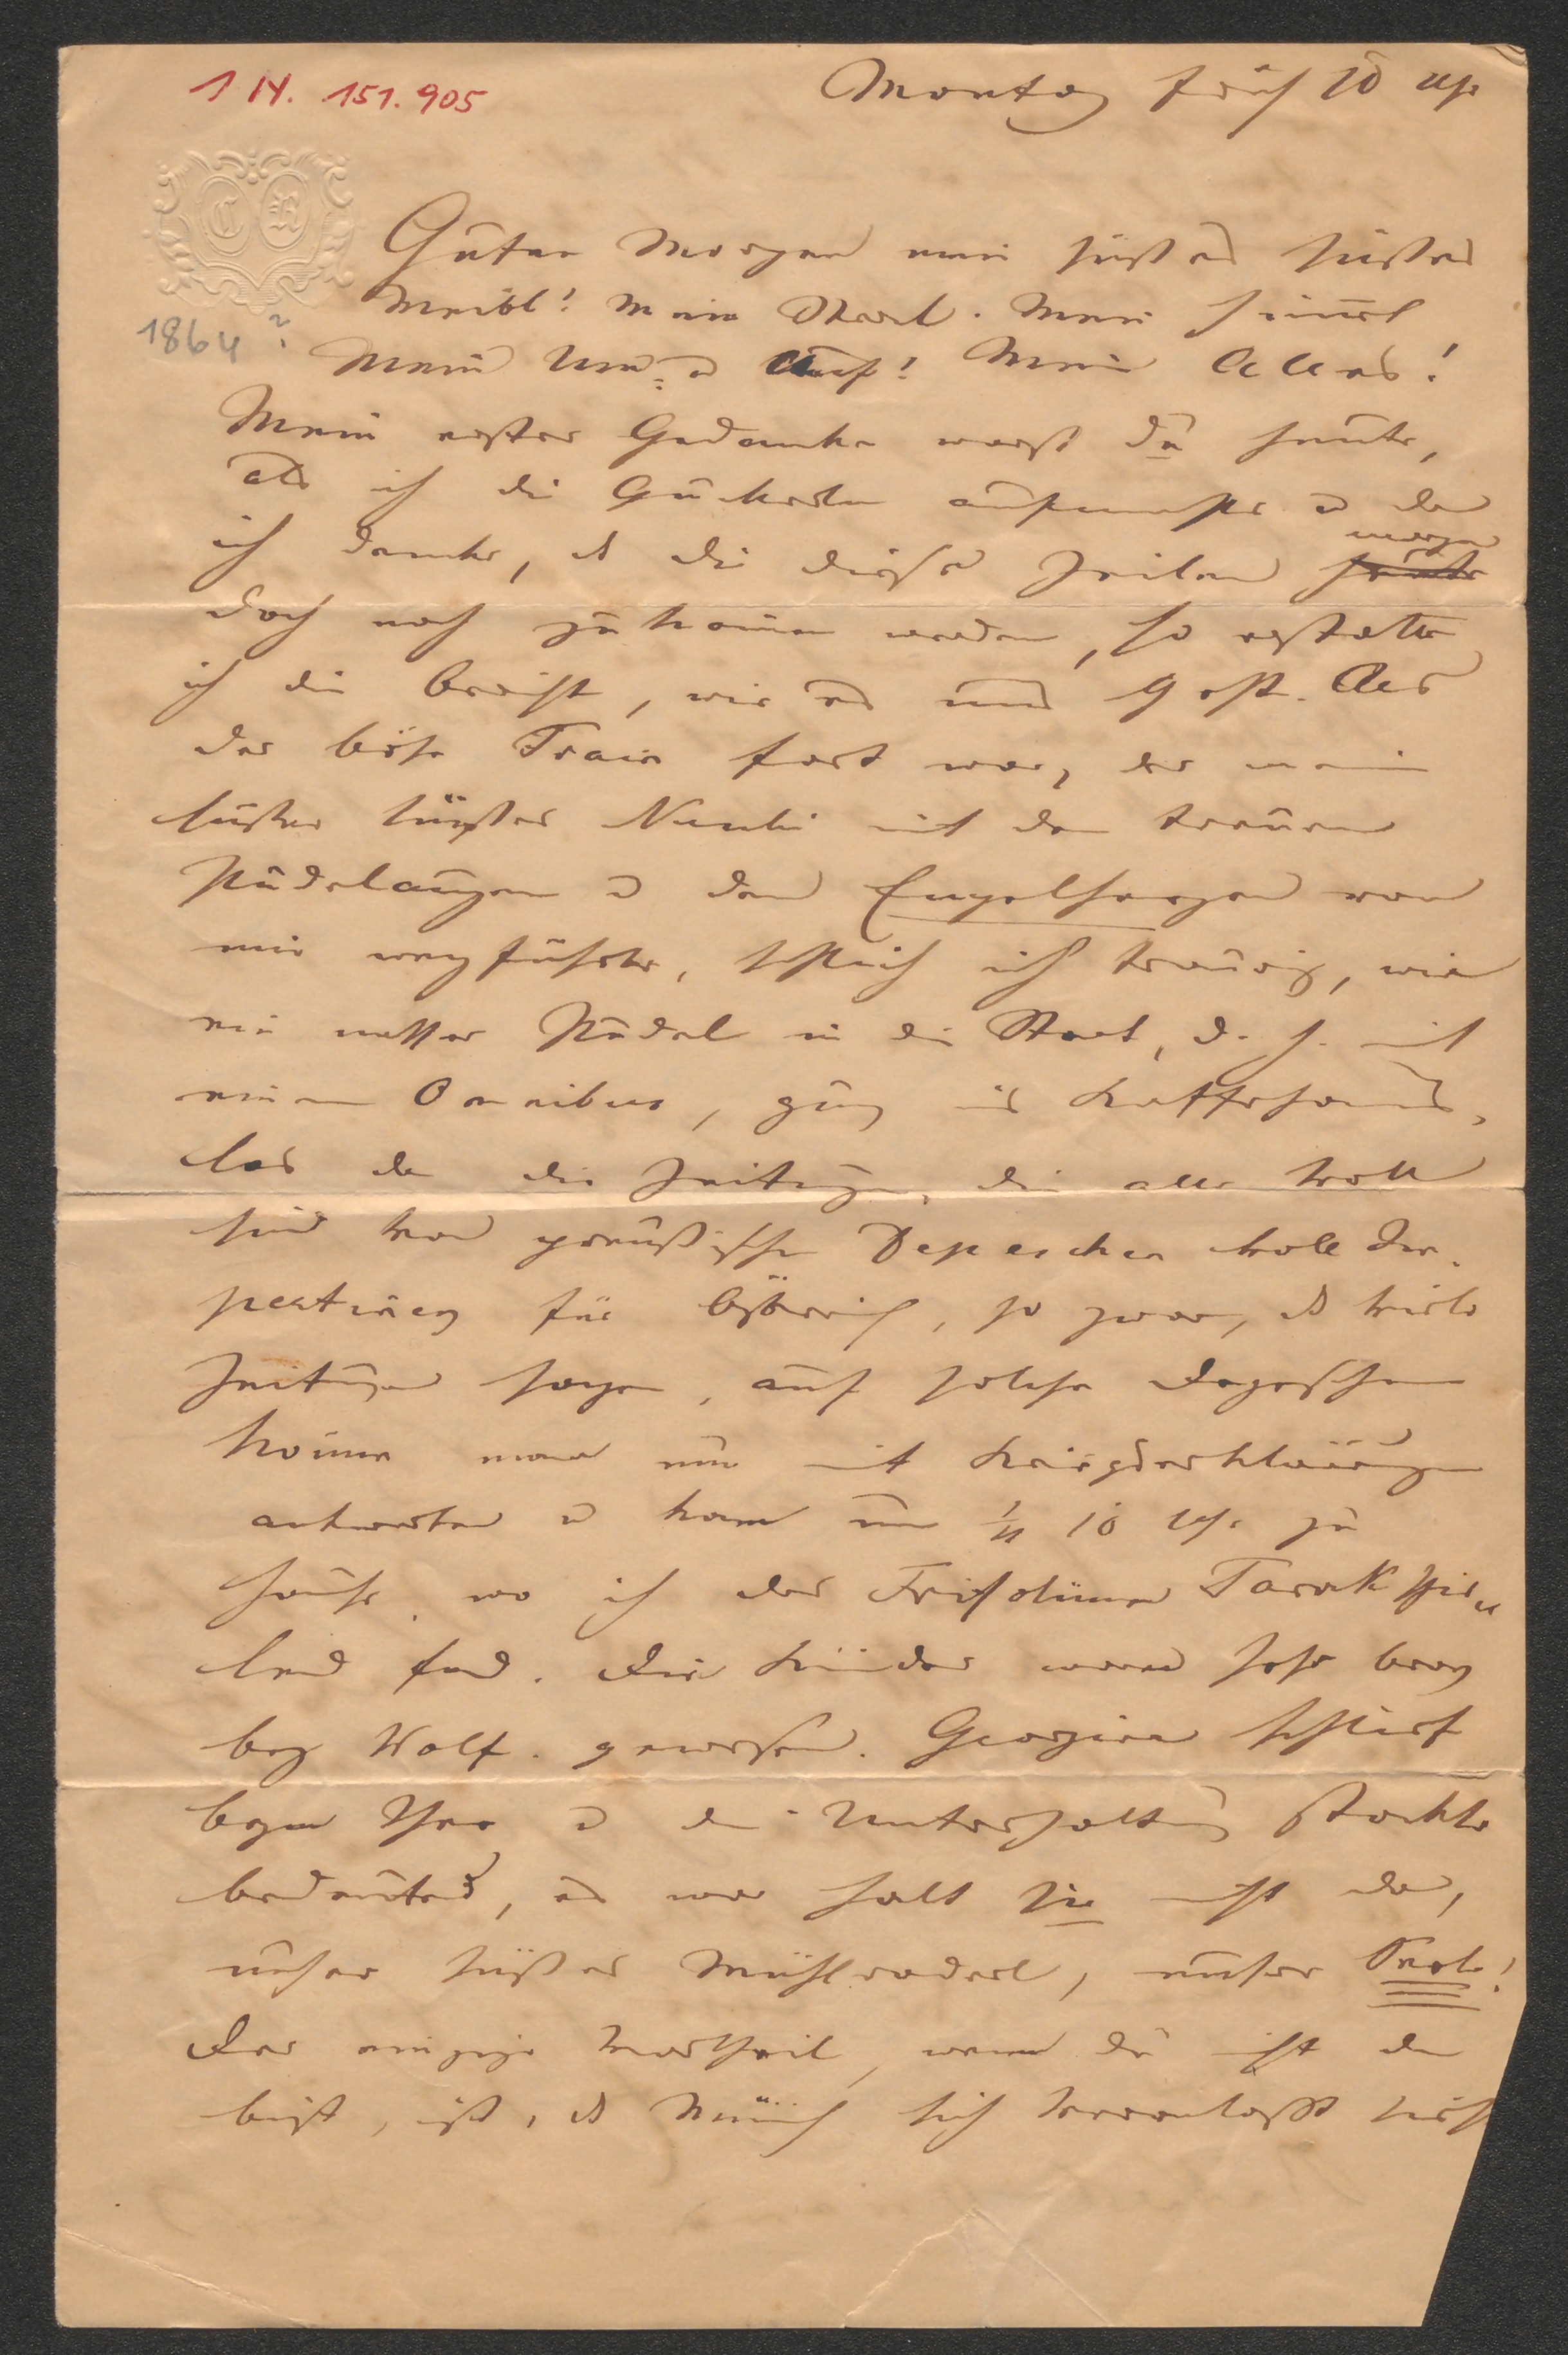 1 N. 151.905
Montag früh 10 Uhr
C R
1864?
Guten Morgen mein süßes süßes
Weibl! Mein Schatz. Mein Himel
Mein Um u Auf! Mein Alles!
Mein erster Gedanke warst Du heute,
als ich die Guckerln aufmachte u da
morgen
ich denke, dß die diese Zeilen heute
doch noch zukomen werden, so erstatte
ich die Bericht, wie es uns geht. Als
der böse Train fort war, der mein
süßes süßes Weibi mit den treuen
Pudelaugen u dem Engelherzen von
mir wegführte, schlich ich traurig, wie
ein nasser Pudel in die Stadt, d. h. mit
einem Omnibus, ging ins Kaffehaus,
las da die Zeitungen, die alle voll
sind von preußischen Depeschen voll Im=
pertinenz für Österreich, so zwar, dß viele
Zeitungen sagen, auf solche Depeschen
könne man nur mit Kriegserklärungen
antworten u kam um 10 Uhr zu
Hause, wo ich das Tarok spie=
lend fand. Die Kinder waren sehr brav
bey Wolf. gewesen. Georgine schlief
beym Thee u die Unterhaltung stockte
bedeutend, es war halt Sie nicht da,
unser süßes Mühlraderl, unser Perle!
Der einzige Vortheil, wenn Du nicht da
bist, ist, dß sich veranlaßt